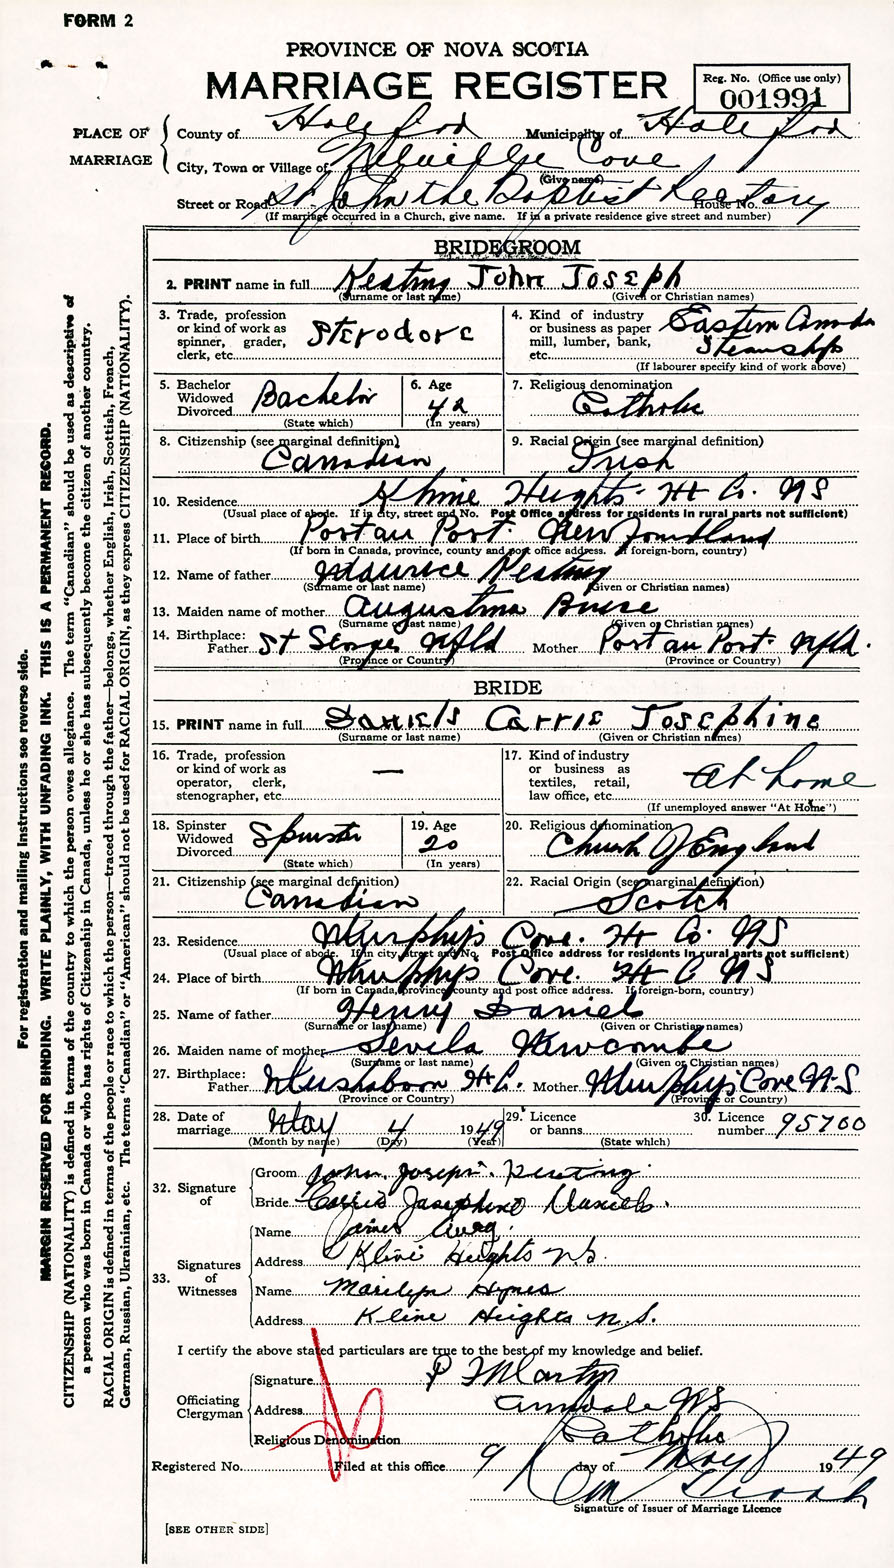 FORM 2
PROVINCE OF NOVA SCOTIA
MARRIAGE REGISTER
Reg. No. (Office use only)
001991
PLACE OF MARRIAGE
County of Halifax Municipality of Halifax
City, Town or Village of Melville Cove
(Give name)
Street or Road St. John the Baptist Rectory House No.
(If marriage occurred in a Church, give name. If in a private residence give street and number)
BRIDEGROOM
2. PRINT name in full Keating John Joseph
(Surname or last name) (Given or Christian names)
3. Trade, profession or kind of work as spinner, grader, clerk, etc. Stevodore
4. Kind of industry or business as paper mill, lumber, bank, etc. Eastern Canada Steamships
(If labourer specify kind of work above)
5. Bachelor Widowed Divorced Bachelor
(State which)
6. Age 42
(In years)
7. Religious denomination Catholic
8. Citizenship (see marginal definition) Canadian
9. Racial Origin (see marginal definition) Irish
10. Residence Kline Heights Hx Co. NS
(Usual place of abode. If in city, street and No. Post Office address for residents in rural parts not sufficient)
11. Place of birth Port au Port. Newfoundland
(If born in Canada, province, county and post office address. If foreign-born, country)
12. Name of father Maurice Keating
(Surname or last name) (Given or Christian names)
13. Maiden name of mother Augustina
(Surname or last name) (Given or Christian names)
14. Birthplace: Father St Georges Nfld Mother Port au Port Nfld.
(Province or Country) (Province or Country)
BRIDE
15. PRINT name in full Daniels Carrie Josephine
(Surname or last name) (Given or Christian names)
16. Trade, profession or kind of work as operator, clerk, stenographer, etc. —
17. Kind of industry or business as textiles, retail, law office, etc. At home
(If unemployed answer "At Home")
18. Spinster Widowed Divorced Spinster
(State which)
19. Age 20
(In years)
20. Religious denomination Church of England
21. Citizenship (see marginal definition) Canadian
22. Racial Origin (see marginal definition) Scotch
23. Residence Murphys Cove. Hx Co NS
(Usual place of abode. If in city, street and No. Post Office address for residents in rural parts not sufficient)
24. Place of birth Murphys Cove. Hx C NS
(If born in Canada, province, county and post office address. If foreign-born, country)
25. Name of father Henry Daniels
(Surname or last name) (Given or Christian names)
26. Maiden name of mother Sevila Newcombe
(Surname or last name) (Given or Christian names)
27. Birthplace: Father Mushaboom Hx C. Mother Murphys Cove N-S
(Province or Country) (Province or Country)
28. Date of marriage May 4 1949
(Month by name) (Day) (Year)
29. Licence or banns
(State which)
30. Licence number 95700
32. Signature of
Groom John Joseph Keating
Bride Carrie Josephine Daniels.
33. Signatures of Witnesses
Name James
Address Kline Heights N.S.
Name Marilyn Hynes
Address Kline Heights N.S.
I certify the above stated particulars are true to the best of my knowledge and belief.
Officiating Clergyman
Signature P J Martin
Address Armdale NS
Religious Denomination Catholic
Registered No. Filed at this office 9 day of May 1949
Signature of Issuer of Marriage Licence
[SEE OTHER SIDE]
For registration and mailing instructions see reverse side.
MARGIN RESERVED FOR BINDING. WRITE PLAINLY, WITH UNFADING INK. THIS IS A PERMANENT RECORD.
CITIZENSHIP (NATIONALITY) is defined in terms of the country to which the person owes allegiance. The term "Canadian" should be used as descriptive of
a person who was born in Canada or who has rights of Citizenship in Canada, unless he or she has subsequently become the citizen of another country.
RACIAL ORIGIN is defined in terms of the people or race to which the person—traced through the father—belongs, whether English, Irish, Scottish, French,
German, Russian, Ukrainian, etc. The terms "Canadian" or "American" should not be used for RACIAL ORIGIN, as they express CITIZENSHIP (NATIONALITY).